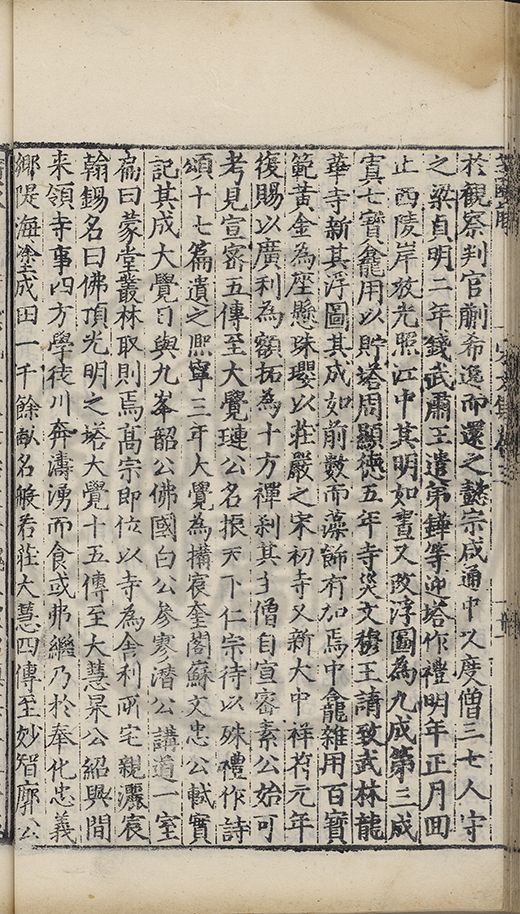 於觀察判官蒯希逸而還之懿宗咸通中又度僧三七人守
之梁貞明二年錢武肅王遣弟鏵等迎塔作禮明年正月囬
止西陵岸放光照江中其明如晝又改浮圖為九成第三成
寘七寶龕用以貯塔周顯德五年寺災文穆王請致武林龍
華寺新其浮圖其成如前數而藻飾有加焉中龕雜用百寶
範黃金為座懸珠瓔以莊嚴之宋初寺又新大中祥符元年
復賜以廣利為額拓為十方禪剎其主僧自宣密素公始可
考見宣密五傳至大覺璉公名振天下仁宗待以殊禮作詩
頌十七篇遺之熈寧三年大覺為搆宸奎閣蘇文忠公軾實
記其成大覺日與九峯韶公佛國白公參寥潛公講道一室
扁曰蒙堂叢林取則焉髙宗即位以寺為舍利所宅親灑宸
翰錫名曰佛頂光明之塔大覺十五傳至大慧杲公紹興間
来領寺事四方學徒川奔濤湧而食或弗繼乃於奉化忠義
鄉隄海塗成田一千餘畝名般若莊大慧四傳至妙智廓公